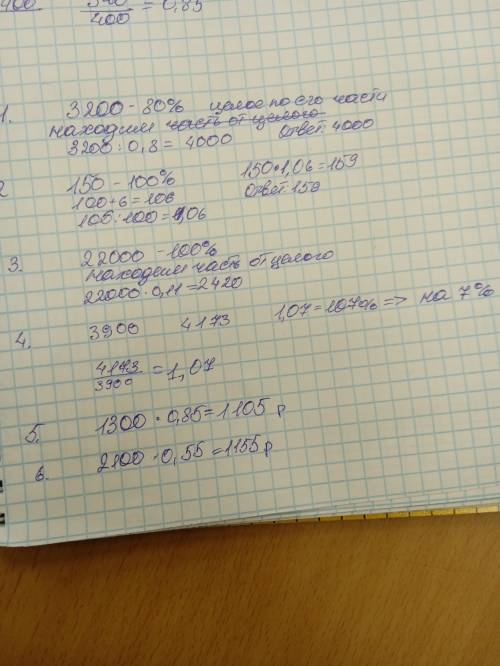 400 = 0,85
1. 3200 - 80% целое по его части
находим часть от целого
3200 : 0,8 = 4000 Ответ: 4000
2 150 - 100% 150 * 1,06 = 159
100 + 6 = 106 Ответ: 159
106 : 100 = 1,06
3. 22000 - 100%
находим часть от целого
22000 * 0,11 = 2420
4. 3900 4173 1,07 = 107% => на 7%
4173
3900 = 1,07
5. 1300 * 0,85 = 1105 р
6. 2100 * 0,55 = 1155 р